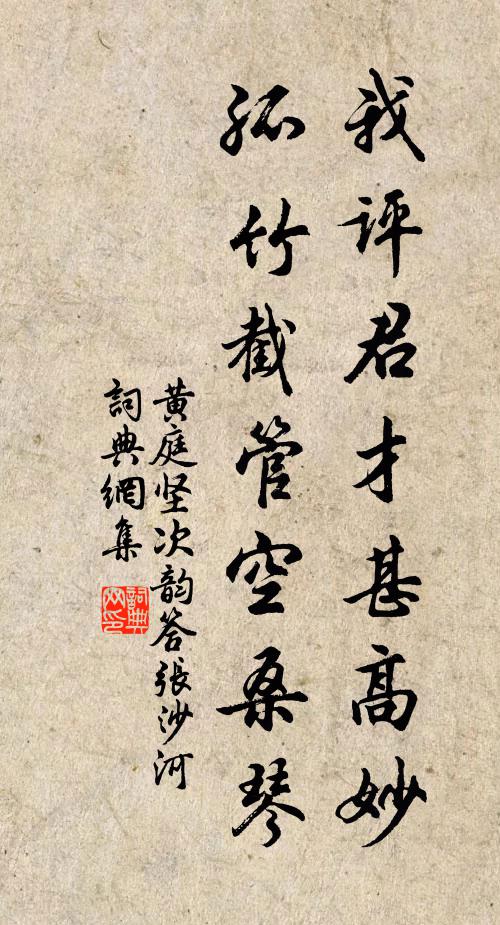 我评君才甚高妙
孤竹截管空桑琴
黄庭坚次韵答張沙河
詞典網集
詞典网印